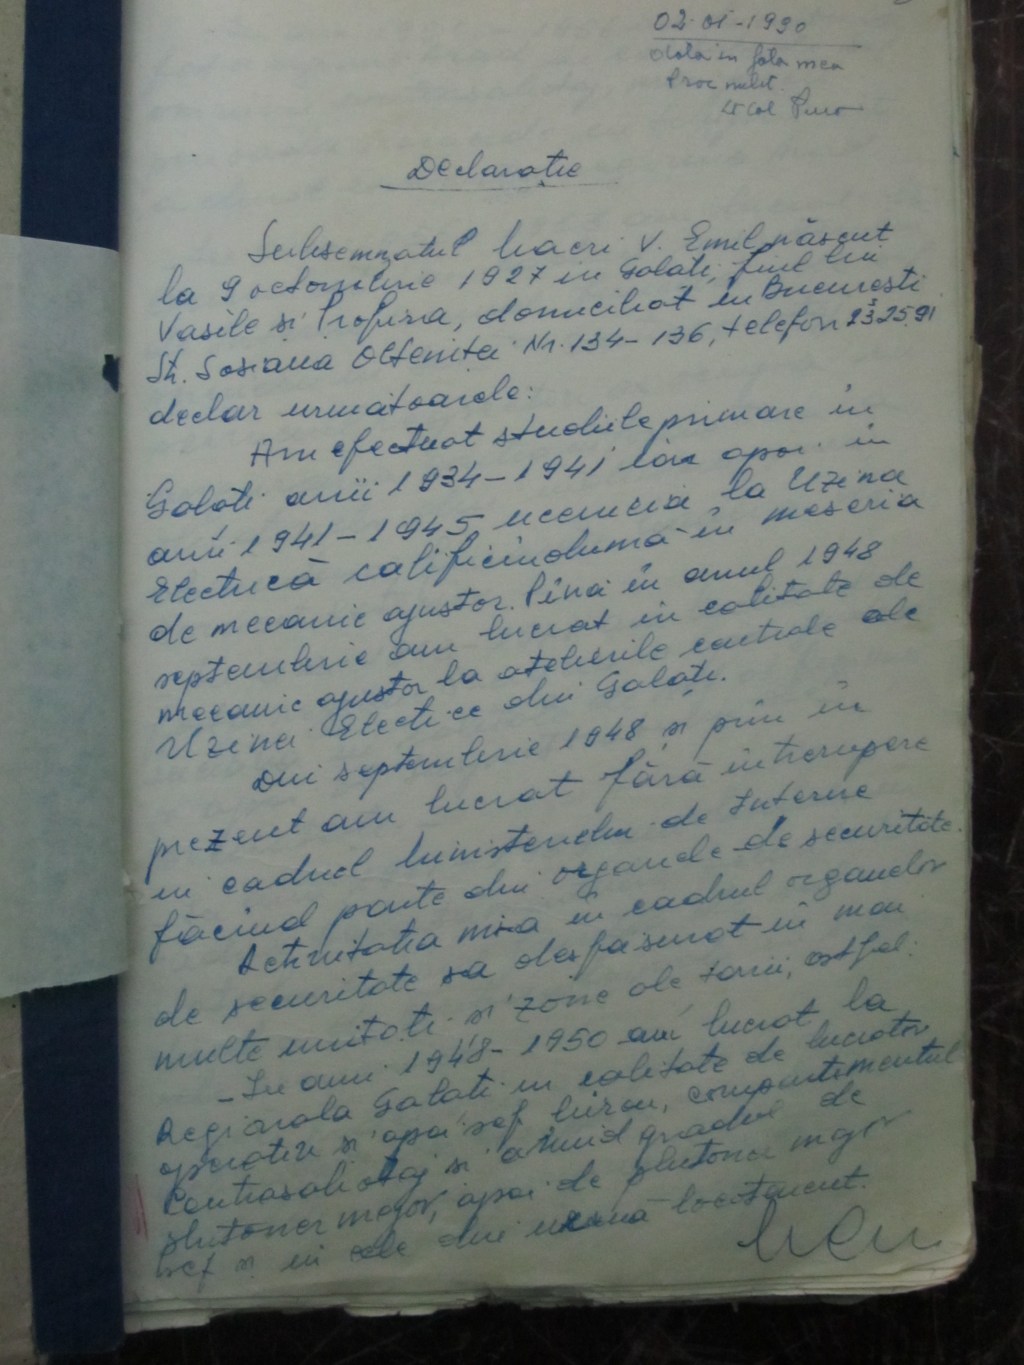 02.01-1990
dată în fața mea
Proc milit.
Lt Col
Declarație
Subsemnatul Macri V. Emil născut
la 9 octombrie 1927 in Galati, fiul lui
Vasile si Profira, domiciliat in Bucuresti
Str. Sosiaua Oltenita Nr. 134-136, telefon
declar urmatoarele:
Am efectuat studiile primare în
Galati anii 1934-1941 iar apoi in
anii 1941-1945 ucenicia la Uzina
Electrică calificindumă în meseria
de mecanic ajustor. Pînă în anul 1948
septembrie am lucrat in calitate de
mecanic ajustor la atelierile centrale ale
Uzinei Electrice din Galati.
Din septembrie 1948 si pîn în
prezent am lucrat fără intrerupere
in cadrul Ministerului de Interne
făcind parte din organele de securitate.
Activitatea mea in cadrul organelor
de securitate sa desfasurat în mai
multe unitati si zone ale tarii, astfel:
- In anii 1948-1950 am lucrat la
Regionala Galati in calitate de lucrator
operativ si apoi sef birou, compartimentul
Contrasabotaj si avind gradul de
plutoner major, apoi de plutoner major
sef si in cele din urmă locotenent.